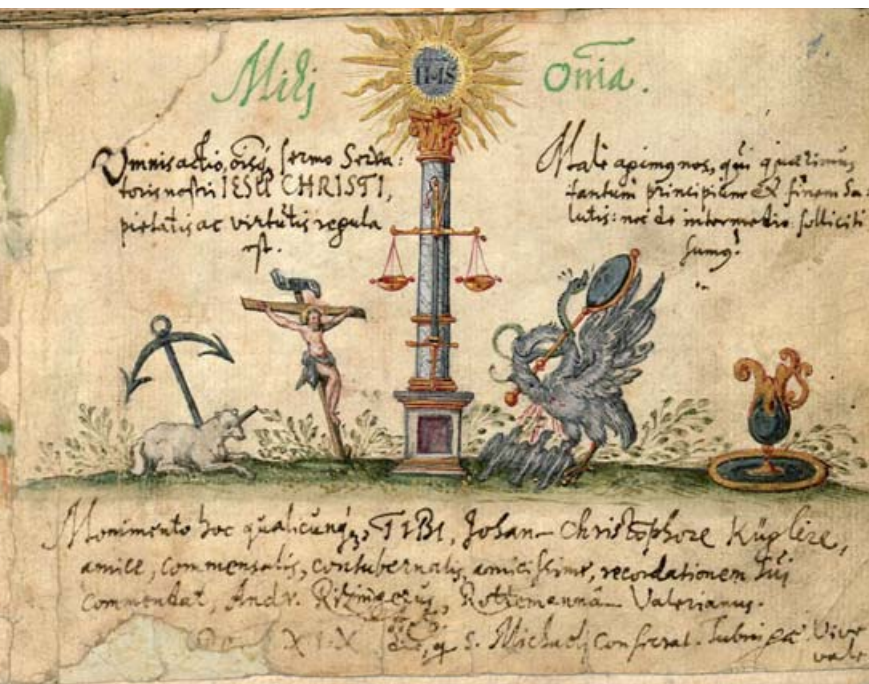 IHS
Mihj Om̄ia.
Omnis actio, sermo Serva:
toris nostri IESU CHRISTI,
pietatis ac virtutis regula
est.
Male agimus nos, qui quærimus
tantum principium & finem Sa:
lutis: de intermedio solliciti
sumus.
Monimento hoc qualicunq, TIBI, Johan Christophore Küglere,
amice, commensalis, contubernalis, amicissime, recordationem sui
commendat, Andr. Ritzingerus, Valerianus.
XIX S. Michaeli consecrat. Vive
vale